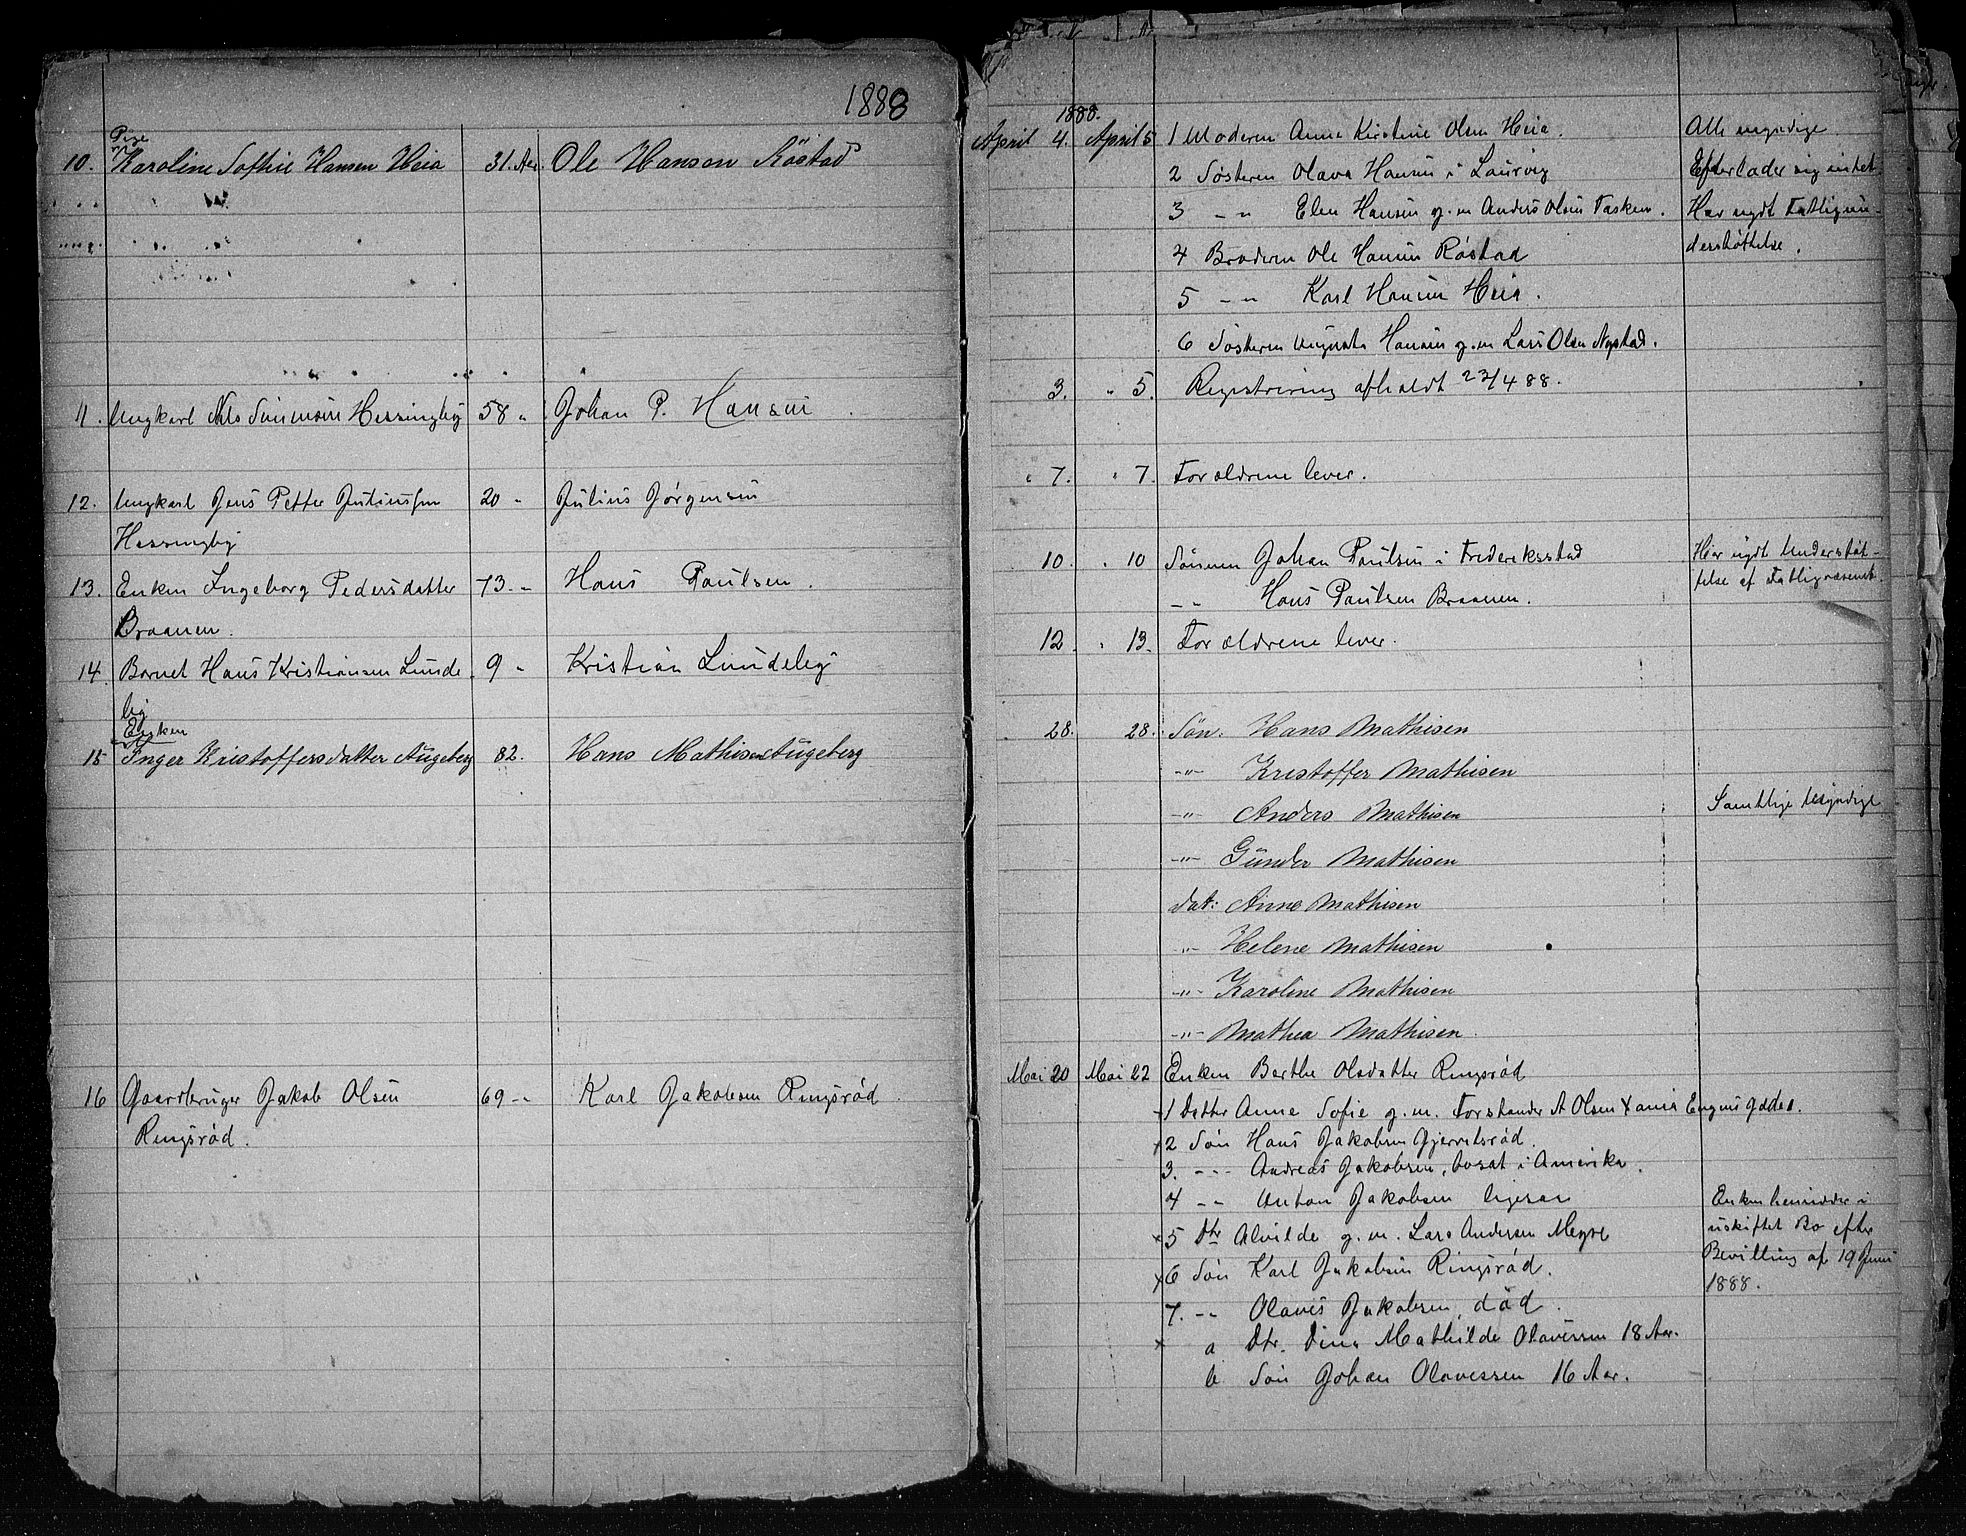 1888
Pige
10. Karoline Sofhie Hansen Heia 31. Aar. Ole Hansen Röstad
11. Ungkarl Nils Simensen Hessingby 58 " Johan P. Hansen
12. Ungkarl Jens Petter Juliussen 20 " Julius Jørgensen
Hessingby
13. Enken Ingeborg Pedersdatter 73 - " Hans Paulsen.
Braanen.
14. Barnet Hans Kristiansen Linde 9 " Kristian Lindeby
by
Enken
15 Inger Kristoffersdatter Augeberg 82. Hans Mathisen Augeberg
16 Gaardbruger Jakob Olsen 69 - " Karl Jakobsen Ringsrød
Ringsrød.
1888.
April 4. April 5 1 Moderen Anne Kirstine Olsen Heia. Alle myndige
2 Søsteren Olava Hansen i Laurvig Efterlader sig intet
3 - " Elen Hansen g. m Anders Olsen Tasken. Har nydt Fattigun-
4 Broderen Ole Hansen Røstad derstøttelse.
5 - " Karl Hansen Heia.
6 Søsteren Augusta Hansen g. m Lars Olsen Nystad.
3. " 5. Registrering afholdt 23/4 88.
" 7. " 7. Forældrene lever.
10. " 10 Sønnen Johan Paulsen i Frederiksstad Har nydt Understøt-
- " Hans Paulsen Braanen. telse af Fattigvæsenet
12. " 13. Forældrene lever.
28. 28. Søn. Hans Mathisen
- " - Kristoffer Mathisen
- " - Anders Mathisen Samtlige Myndige
- " - Günder Mathisen
dat: Anne Mathisen
- " - Helene Mathisen
- " - Karoline Mathisen
- " - Mathea Mathisen.
Mai 20 Mai 22 Enken Berthe Olsdatter Ringsrød
1 Datter Anne Sofie g. m. Forstander A Olsen Xania Engens Gade 1.
x 2 Søn Hans Jakobsen Gjerretsrød.
3. - " Andreas Jakobsen, bosat i Amerika.
4 - " Anton Jakobsen ligesaa Enken hensidder i
x 5 Dtr Alvilde g. m. Lars Andersen Meyre uskiftet Bo efter
x 6 Søn Karl Jakobsen Ringsrød. Bevilling af 19 Juni
7. - " Olaves Jakobsen, død. 1888.
x a Dtr. Dina Mathilde Olavessen 18 Aar.
b Søn Johan Olavessen 16 Aar.